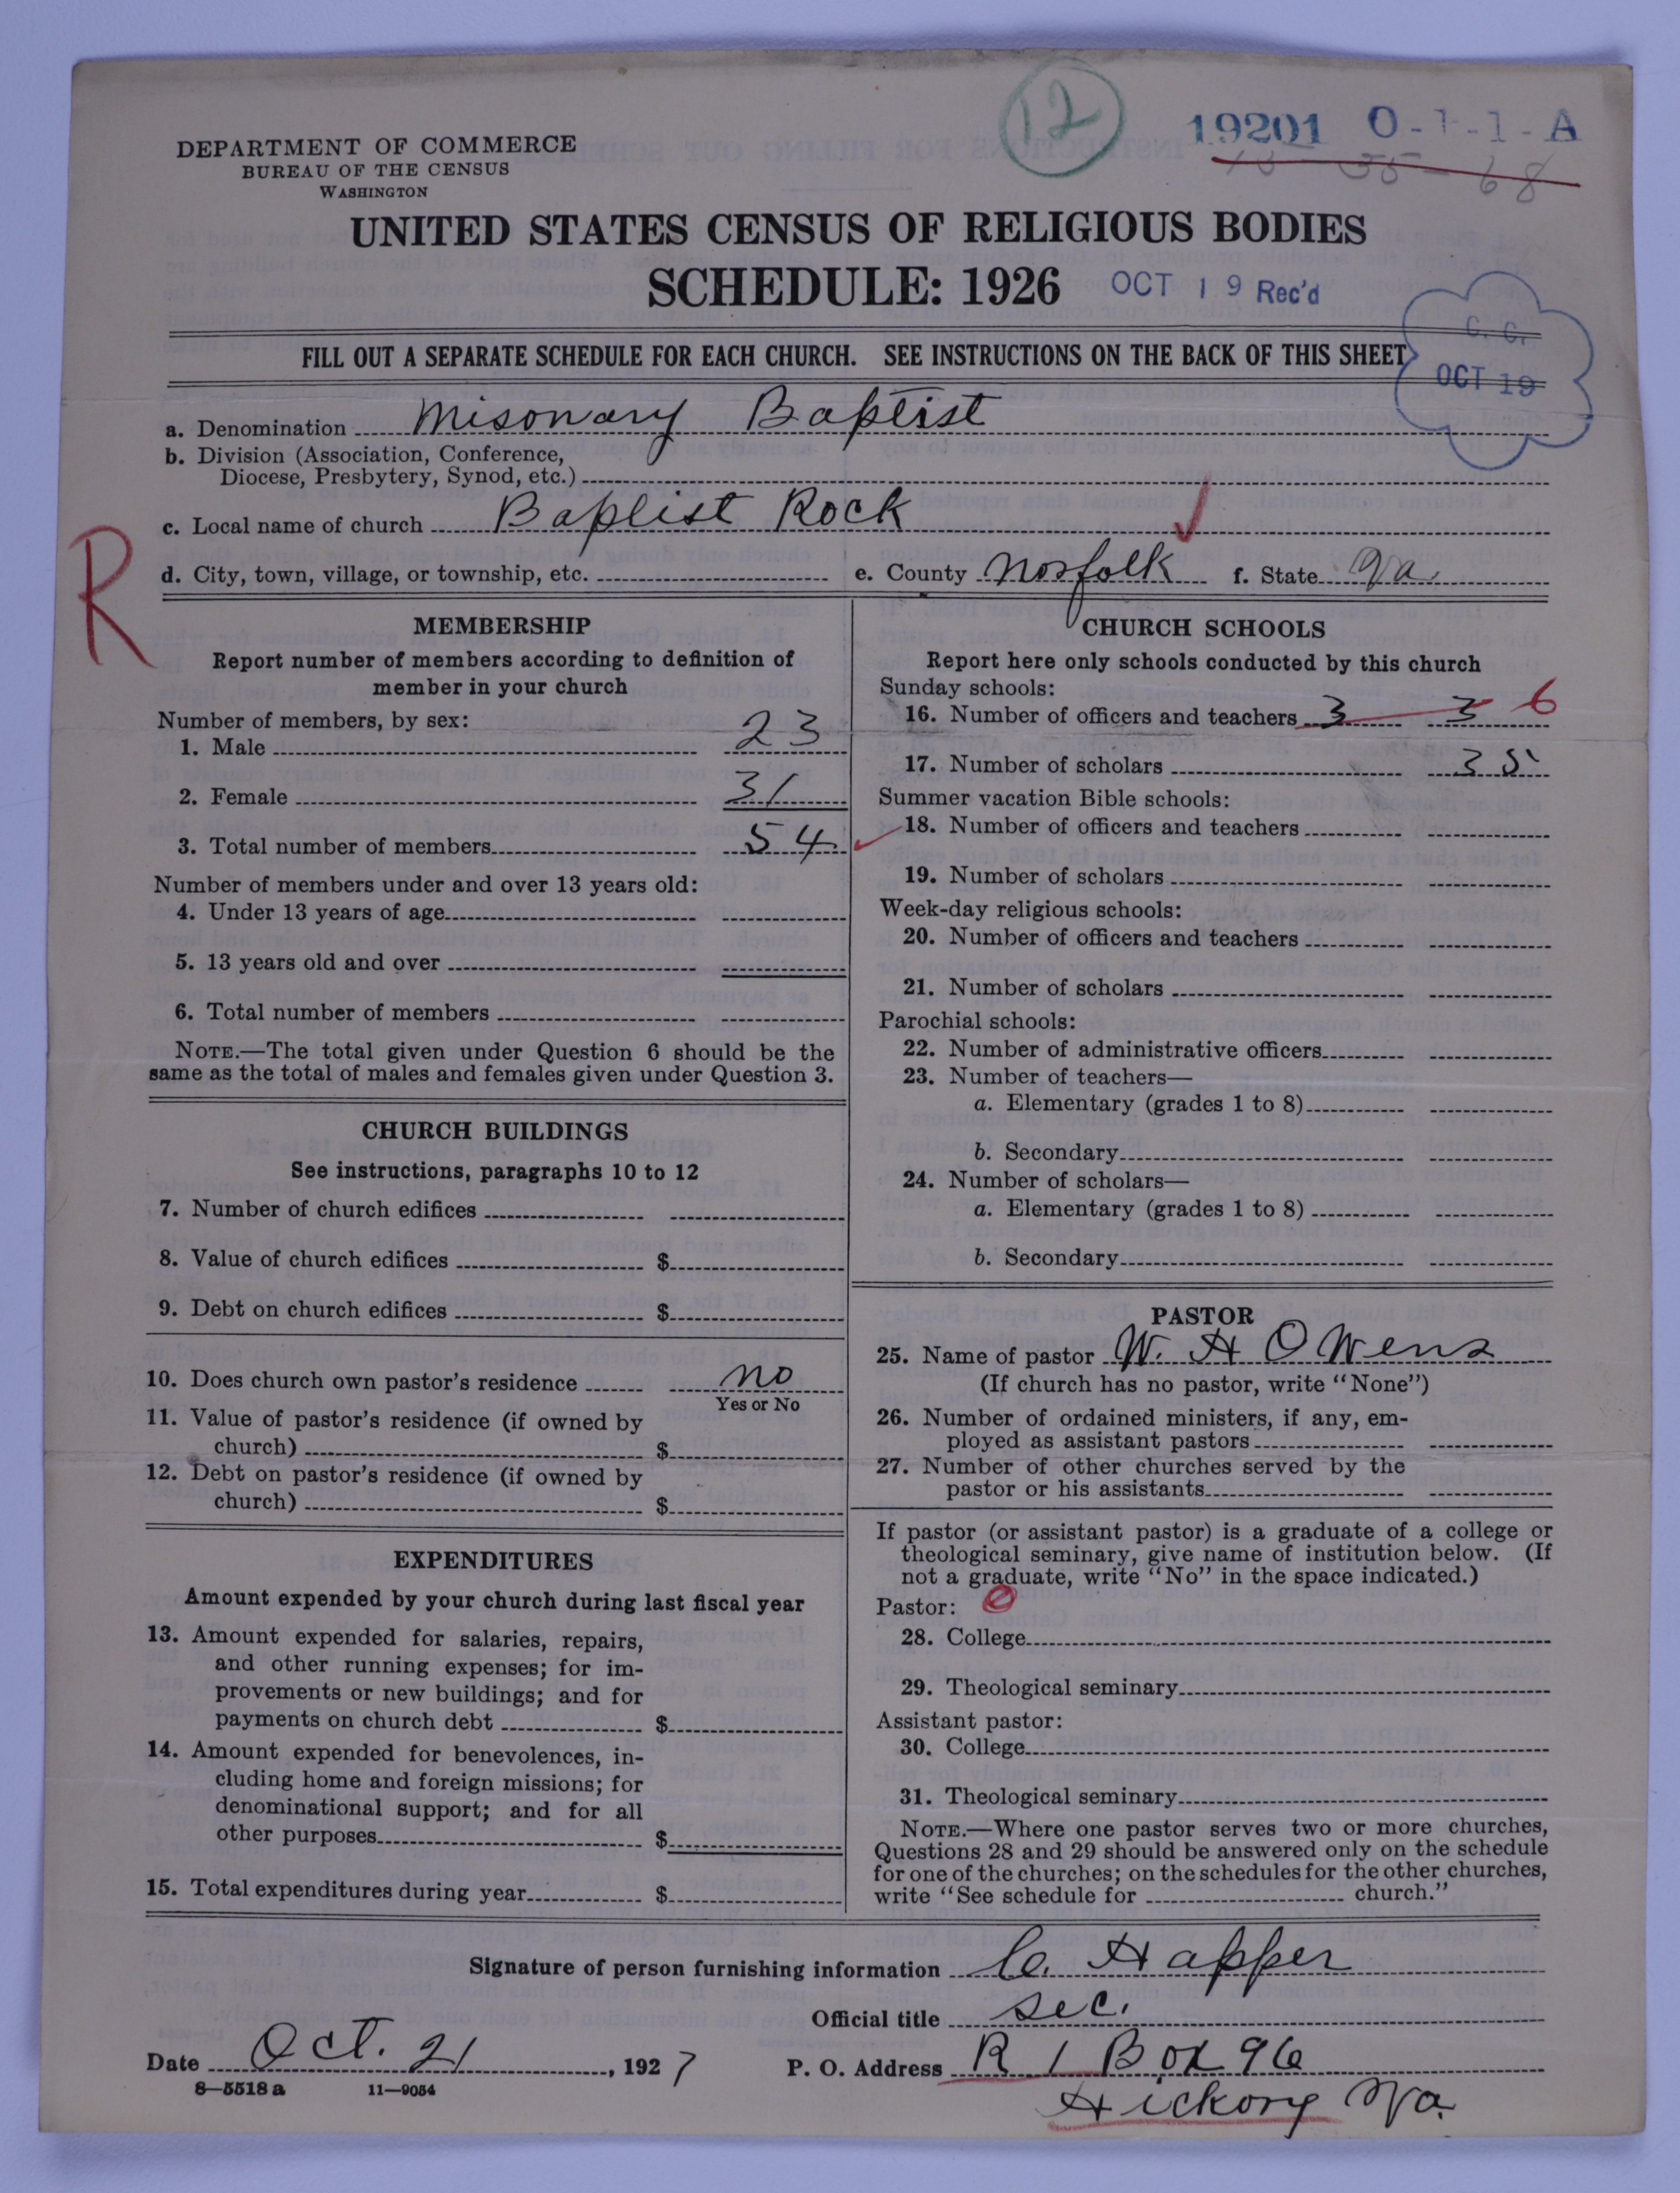 12
19201 0-1-1-A
DEPARTMENT OF COMMERCE
BUREAU OF THE CENSUS
WASHINGTON
UNITED STATES CENSUS OF RELIGIOUS BODIES
SCHEDULE: 1926 OCT 19 Rec'd
C. C.
OCT 19
FILL OUT A SEPARATE SCHEDULE FOR EACH CHURCH. SEE INSTRUCTIONS ON THE BACK OF THIS SHEET
a. Denomination Misonary Baptist
b. Division (Association, Conference,
Diocese, Presbytery, Synod, etc.)
c. Local name of church Baptist Rock
d. City, town, village, or township, etc. e. County Norfolk f. State Va.
R
MEMBERSHIP
Report number of members according to definition of
member in your church
Number of members, by sex:
1. Male 23
2. Female 31
3. Total number of members 54
Number of members under and over 13 years old:
4. Under 13 years of age
5. 13 years old and over
6. Total number of members
NOTE.—The total given under Question 6 should be the
same as the total of males and females given under Question 3.
CHURCH BUILDINGS
See instructions, paragraphs 10 to 12
7. Number of church edifices
8. Value of church edifices $
9. Debt on church edifices $
10. Does church own pastor's residence no
Yes or No
11. Value of pastor's residence (if owned by
church) $
12. Debt on pastor's residence (if owned by
church) $
EXPENDITURES
Amount expended by your church during last fiscal year
13. Amount expended for salaries, repairs,
and other running expenses; for im-
provements or new buildings; and for
payments on church debt $
14. Amount expended for benevolences, in-
cluding home and foreign missions; for
denominational support; and for all
other purposes $
15. Total expenditures during year $
CHURCH SCHOOLS
Report here only schools conducted by this church
Sunday schools:
16. Number of officers and teachers 3 3 6
17. Number of scholars 35
Summer vacation Bible schools:
18. Number of officers and teachers
19. Number of scholars
Week-day religious schools:
20. Number of officers and teachers
21. Number of scholars
Parochial schools:
22. Number of administrative officers
23. Number of teachers—
a. Elementary (grades 1 to 8)
b. Secondary
24. Number of scholars—
a. Elementary (grades 1 to 8)
b. Secondary
PASTOR
25. Name of pastor W. H Owens
(If church has no pastor, write "None")
26. Number of ordained ministers, if any, em-
ployed as assistant pastors
27. Number of other churches served by the
pastor or his assistants
If pastor (or assistant pastor) is a graduate of a college or
theological seminary, give name of institution below. (If
not a graduate, write "No" in the space indicated.)
Pastor:
28. College
29. Theological seminary
Assistant pastor:
30. College
31. Theological seminary
NOTE.—Where one pastor serves two or more churches,
Questions 28 and 29 should be answered only on the schedule
for one of the churches; on the schedules for the other churches,
write "See schedule for church."
Signature of person furnishing information C. Happer
Official title Sec.
Date Oct. 21, 1927 P. O. Address R 1 Box 96
Hickory Va.
8—5518 a 11—9054